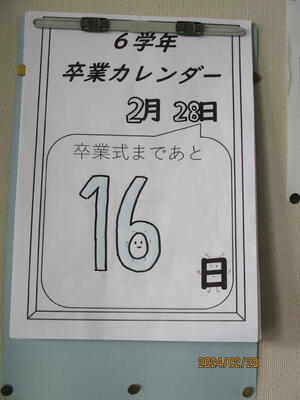 6学年
卒業カレンダー
2月 28日
卒業式まであと
16
日
2024/02/28